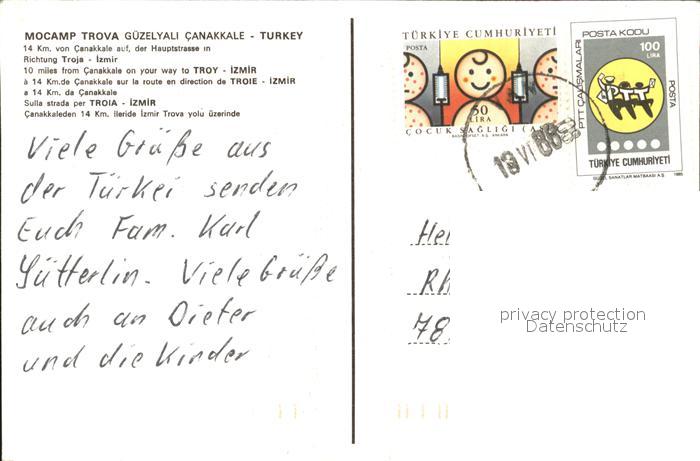 MOCAMP TROVA GÜZELYALI ÇANAKKALE - TURKEY
14 Km. von Çanakkale auf, der Hauptstrasse ın
Richtung Troja - İzmir
10 miles from Çanakkale on your way to TROY - İZMİR
à 14 Km.de Çanakkale sur la route en direction de TROIE - İZMİR
a 14 Km. da Çanakkale
Sulla strada per TROIA - İZMİR
Çanakkaleden 14 Km. ileride İzmir Trova yolu üzerinde
Viele Grüße aus
der Türkei senden
Euch Fam. Karl
Sütterlin. Viele Grüße
auch an Dieter
und die Kinder
TÜRKİYE CUMHURİYETİ
POSTA
50
LİRA
ÇOCUK SAĞLIĞI
POSTA KODU
100
LİRA
PTT ÇALIŞMALARI
POSTA
PTT
TÜRKİYE CUMHURİYETİ
GÜZEL SANATLAR MATBAASI A.Ş. 1985
19 VI 86
Rh
78
privacy protection
Datenschutz